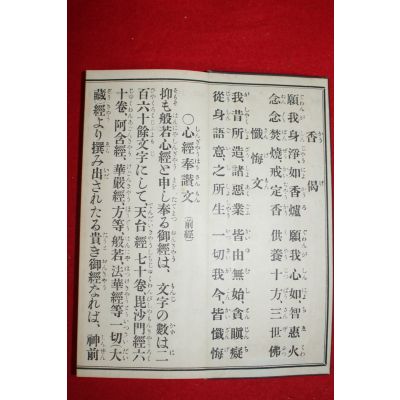 香偈
願我身淨如香爐 願我心如智惠火
念念焚燒戒定香 供養十方三世佛
懺悔文
我昔所造諸惡業 皆由無始貪瞋癡
從身語意之所生 一切我今皆懺悔
○心經奉讃文(前經)
抑も般若心經と申し奉る御經は、文字の數は二
百六十餘文字にして、天台經七十卷、毘沙門經六
十卷、阿含經、華嚴經、方等、般若、法華經等一切(大
藏經より撰み出されたる貴き御經なれば、神前